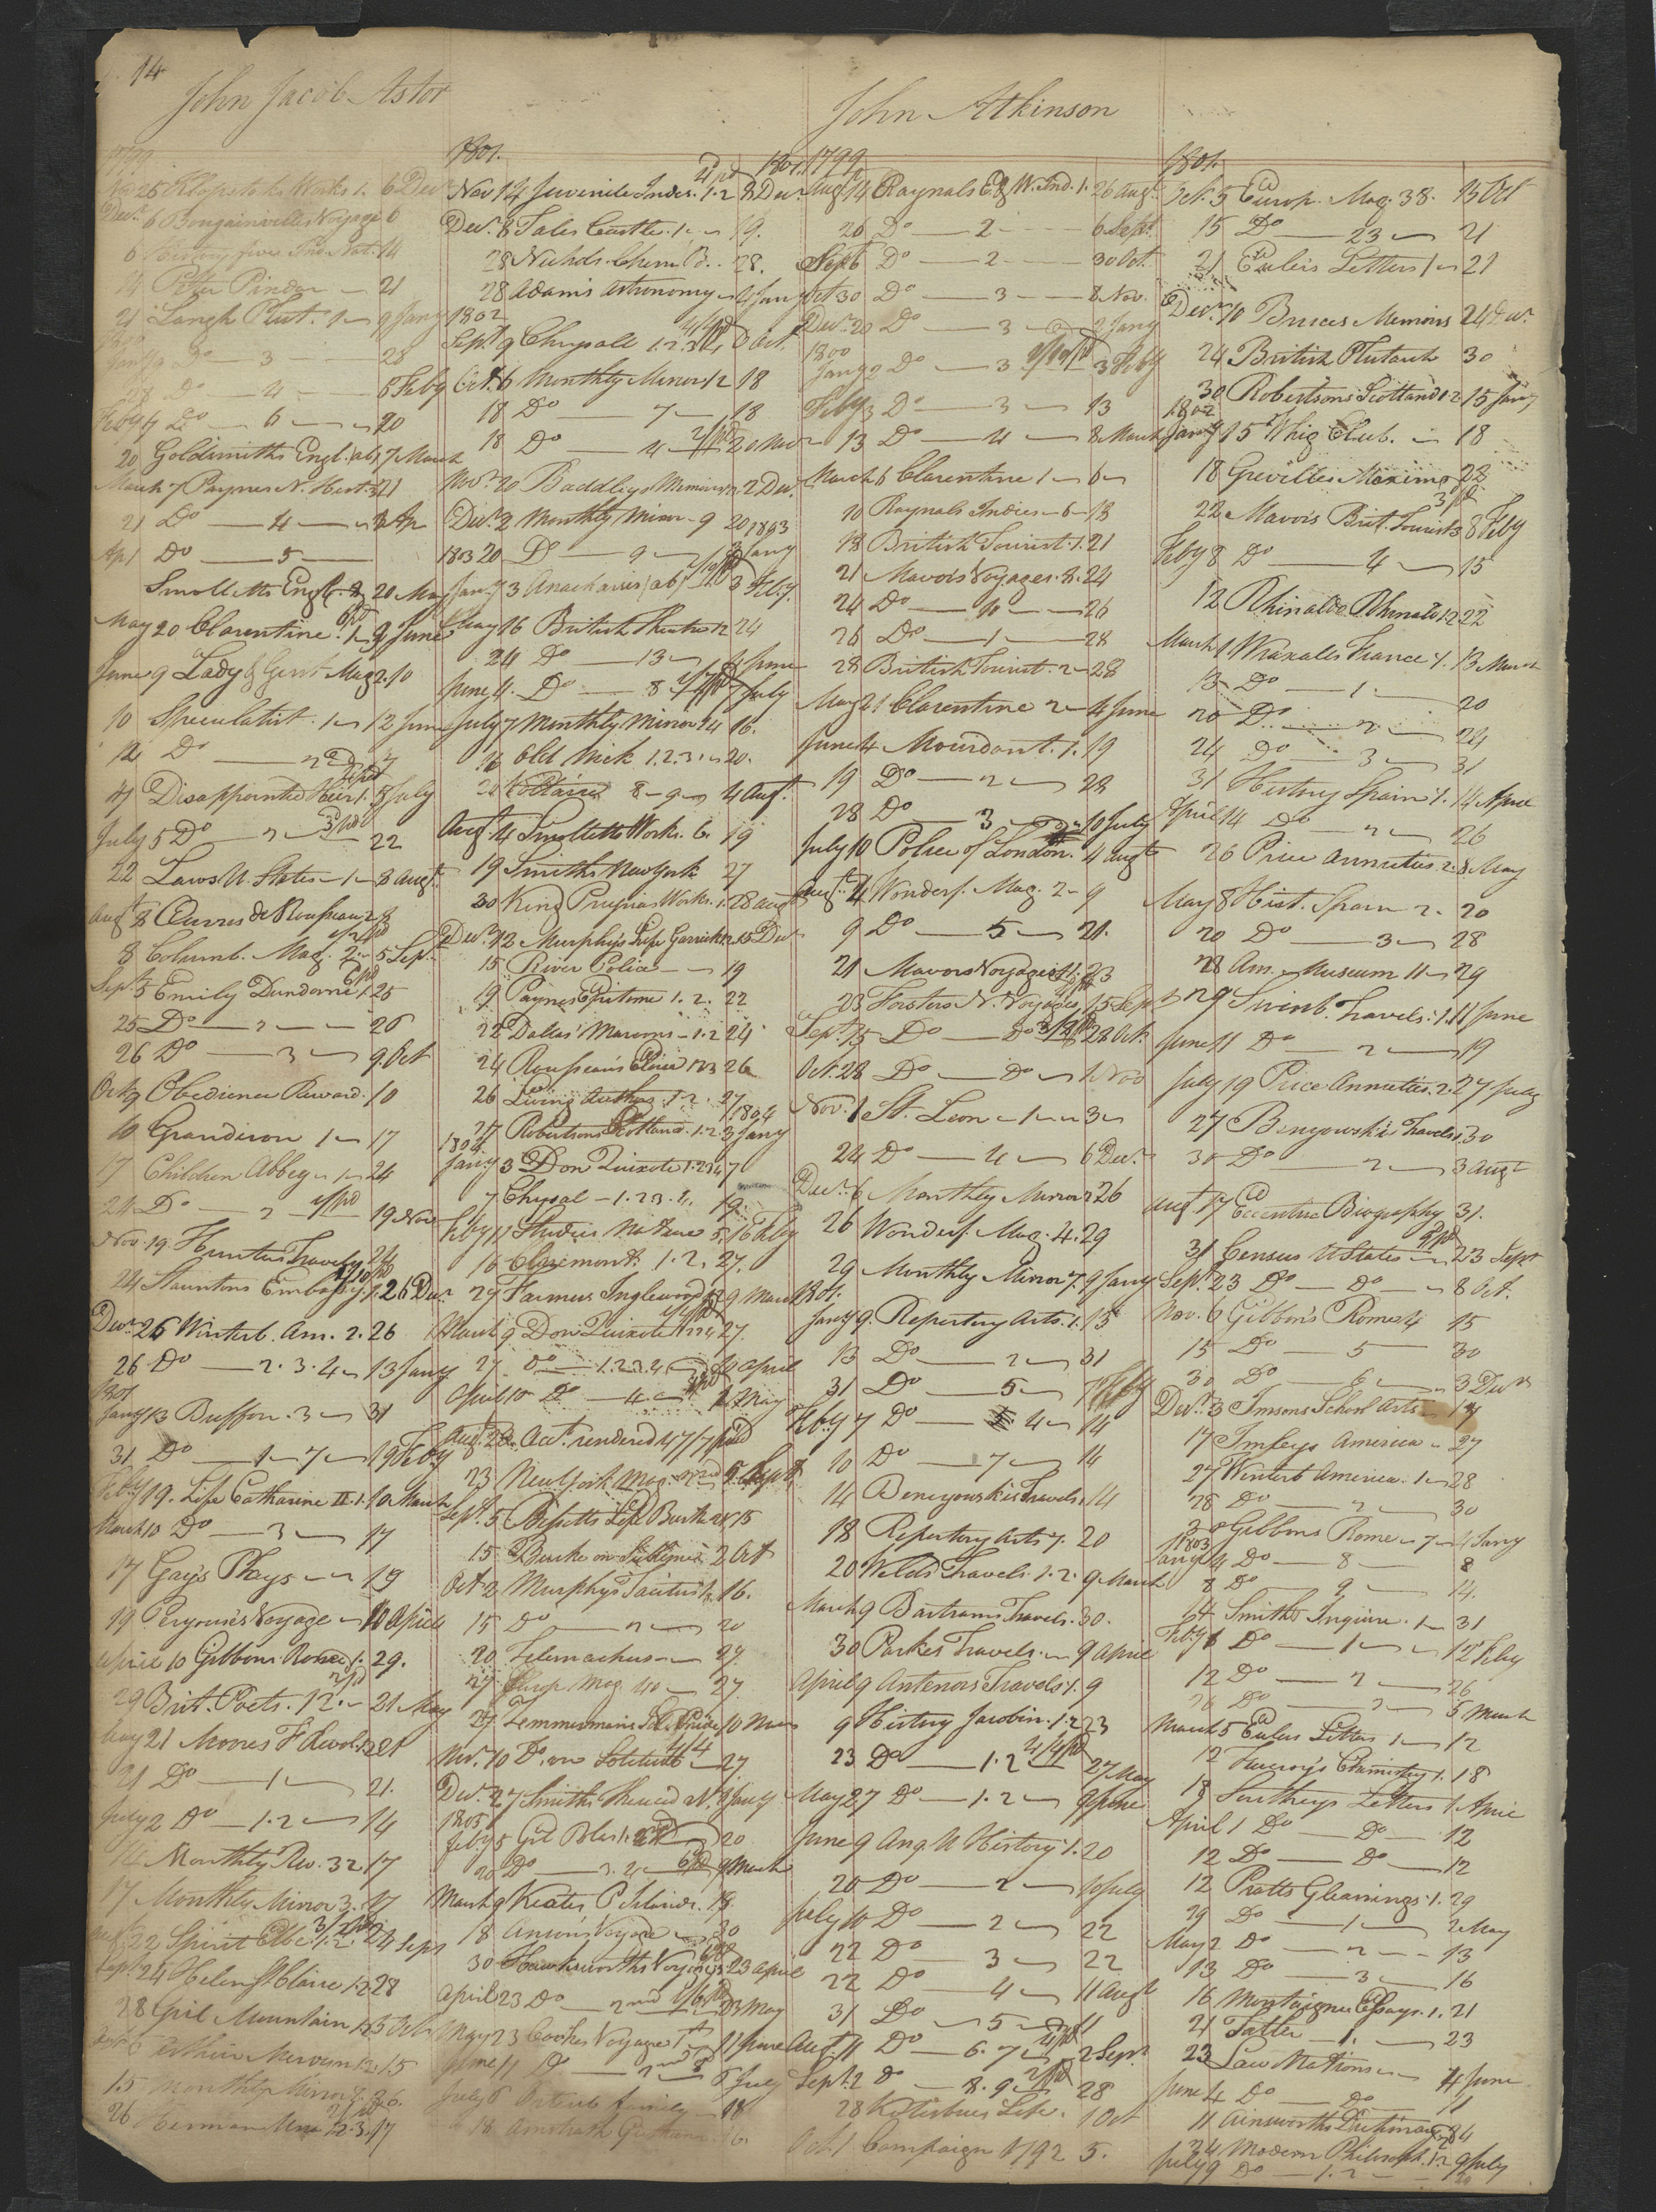 14
John Jacob Astor
1799
Nov 25 Klopstocks Works 1. 6 Decr
Decr. 6 Bougainvilles Voyage 6
14 Peter Pindar — 21
21 Langh Plut. 1 — 9 Jany
Jany 9 Do — 3 — 28
28 Do — 4 — 6 Feby
Feby 6 Do — 6 — 20
20 Goldsmiths Engl. ab. 7 March
March 7 Paynes N. Hist. 3 21
21 Do — 4 — Ap
Ap 1 Do — 5 —
Smolletts Engl. 20 May
May 20 Clarentine. 1 — 9 June
June 9 Lady & Gent Mag 2. 10
10 Speculatist. 1 — 12 June
12 Do — 2
17 Disappointed Heir 1. 5 July
July 5 Do — 2 — 22
22 Laws U. States — 1 — 8 Augt.
Augt 8 Œuvres de Rousseau 2. 8
8 Columb. Mag. 2. — 5 Sept.
Sept. 5 Emily Dundorne 1. 25
25 Do — 2 — 26
26 Do — 3 — 9 Oct
Oct. 9 Obedience Reward. 10
10 Grandison 1 — 17
17 Children Abbey — 1 — 24
24 Do — 2 — 19 Nov
Nov. 19 Hunters Travels 24
24 Stauntons Embassy 1. 26 Decr
Decr 26 Winterb. Am. 2. 26
26 Do — 2. 3. 4 — 13 Jany
1801
Jany 13 Buffon. 3 — 31
31 Do — 1 — 7 — 19 Feby
Feby 19. Life Catharine II. 1. 10 March
March 10 Do — 3 — 17
17 Gay's Plays — 19
19 Peyrouse's Voyage — 10 April
April 10 Gibbons Rome 1. 29.
29 Brit. Poets. 12. — 21 May
May 21 Moores F. Revol. 1. 2 21
21 Do — 1 — 21.
July 2 Do — 1. 2 — 14
14 Monthly Rev. 32 17
17 Monthly Mirror 3. 17
22 Spirit Elbe. 1. 2. 24 Sept
Sept. 24 Helen St Claire 1. 2 28
28 Gril Mountain 1. 2 5 Oct
Arthur Mervyn 1. 2. 15
15 Monthly Mirror 8. 26.
26 Herman Una 2. 3. 17
1801.
Nov 14 Juvenile Indis. 1. 2 8 Decr
Decr. 8 Tales Castle. 1 — 19.
28 Nichols. Chem. — 28.
28 Adams Astronomy — 4 Jany
1802
Sept. 9 Chrysal 1. 2. 3. 4 6 Oct.
Oct. 6 Monthly Mirror 12 18
18 Do 7 — 18
18 Do 4 20 Nov
Nov. 20 Baddleys Memoirs 1. 2 2 Decr.
Decr. 2 Monthly Mirror — 9 20
1803 20 Do — 9 — 3 Jany
Jany 3 Anacharsis (ab) 3 Feby.
May 16 British Theatre 12 24
24 Do — 13 — 4 June
June 4. Do — 8 7 July
July 7 Monthly Mirror 14 16.
16 Old Nick 1. 2. 3. — 20.
20 Voltaire 8 — 9 — 4 Augt.
Augt 4 Smolletts Works. 6. 19
19 Smiths New York 27
30 King Prussias Works. 1. 28 Augt
Decr. 12 Murphy's Life Garrick 1. 2. 15 Decr
15 River Police — 19
19 Paynes Epitome 1. 2. 22
22 Dallas' Maroons — 1. 2 24
24 Rousseau's Eloisa 1. 2. 3 26
26 Living Authors. 1. 2. 27
1804
27 Robertsons Scotland. 1. 2. 3 Jany
1804
Jany 3 Don Quixote 1. 2. 3. 4 7
7 Chrysal — 1. 2. 3. 4. 19
Feby 11 Studies Nature 5. 16 Feby
16 Claremont. 1. 2. 27.
27 Farmers Inglewood 1. 2 9 March
March 9 Don Quixote 1. 2. 3. 4 27.
27 Do — 1. 2. 3. 4 10 April
April 10 Do — 4. — 17 May
Augt. 20. Acct. rendered 4/7 paid
23 New York Mag. — 2 5 Sept
Sept. 5 Bissetts Life Burke 15
15 Burke on Sublime 2 Oct
Oct. 2 Murphys Tacitus 1. 16.
15 Do — 2 — 20
20 Telemachus — 27.
27 Europ Mag. 40 — 27.
27 Zimmermans Pride 10 Nov
Nov. 10 Do. on Solitude — 27.
Decr. 27 Smiths Thucid. 1. 2 Jany
1805
Feby 5 Gil Blas 1. 2 20
20 Do — 3. 4 — 9 March
March 9 Keates P. Islands. 18
18 Ansons Voyage — 30
30 Hawkesworths Voyages 23 April
April 23 Do — 2nd 23 May
May 23 Cooks Voyage 1st 11 June
June 11 Do — 2nd 6 July
July 6 Ortenb. family — 18
John Atkinson
1799
Augt. 14 Raynals E & W. Ind. 1. 26 Augt.
26 Do — 2 — 6 Sept.
Sept 6 Do — 2 — 30 Oct.
Oct 30 Do — 3 — 8 Nov.
Decr. 20 Do — 3 — 2 Jany
1800
Jany 2 Do — 3 3 Feby
Feby 3 Do — 3 — 13
13 Do — 4 — 8 March
March 6 Clarentine 1 — 6 —
10 Raynals Indies — 6 — 18
18 British Tourist. 1. 21
21 Mavors Voyages. 8. 24
24 Do — 4 — 26
26 Do — 1 — 28
28 British Tourist. 2 — 28
May 21 Clarentine 2 — 4 June
June 4 Mourdant. 1. 19
19 Do — 2 — 28
28 Do — 3 — 10 July
July 10 Police of London. 4 Augt
Augt. 4 Wonderf. Mag. 2 — 9
9 Do — 5 — 21.
21 Mavors Voyages 11. 23
23 Forsters N. Voyages 15 Sept
Sept. 15 Do — Do 28 Oct.
Oct. 28 Do — Do — 1 Nov
Nov. 1 St. Leon — 1 — 3 —
24 Do — 4 — 6 Decr.
Decr. 6 Monthly Mirror 2 26
26 Wonderf. Mag. 4. 29
29 Monthly Mirror 7. 9 Jany
1801.
Jany 9. Repertory Arts. 1. 13
13 Do — 2 — 31
31 Do — 5 — 7 Feby
Feby 7 Do — 4 — 14
10 Do — 7 — 14
14 Benyowskis Travels 1 14
18 Repertory Arts 7. 20
20 Welds Travels. 1. 2. 9 March
March 9 Bartrams Travels. 30.
30 Parkes Travels. — 9 April
April 9 Antenors Travels 1. 9
9 History Jacobin. 1. 2 23
23 Do — 1. 2 27 May
May 27 Do — 1. 2 — 9 June
June 9 Ang. U History. 1. 20
20 Do — 2 — 10 July
July 10 Do — 2 — 22
22 Do — 3 — 22
22 Do — 4 — 11 Augt
31 Do — 5 — 11
Augt. 11 Do — 6. 7 — 2 Sept.
Sept. 2 Do — 8. 9 28
28 Kotzebues Life. 1 Oct
Oct. 1 Campaign 1792 5.
1801.
Oct. 5 Europ. Mag. 38. 15 Oct
15 Do — 23 — 21
21 Eulers Letters 1 — 21
Decr. 10 Bruces Memoirs 24 Decr.
24 British Plutarch 30
30 Robertsons Scotland 1. 2 15 Jany
1802
Jany 15 Whig Club. — 18
18 Grevilles Maxims 22
22 Mavors Brit. Tourist 3 8 Feby
Feby 8 Do — 4 — 15
12 Rhinaldo Rhinald 1. 2 22
March 1 Wraxalls France 1. 13 March
13 Do — 1 — 20
20 Do — 2 — 24
24 Do — 3 — 31
31 History Spain 1. 14 April
April 14 Do — 2 — 26
26 Price Annuities 2. 8 May
May 8 Hist. Spain 2. 20
20 Do — 3 — 28
28 Am. Museum 11 — 29
29 Swinb. Travels. 1. 11 June
June 11 Do — 2 — 19
July 19 Price Annuities. 2. 27 July
27 Benyowski's Travels 1. 30
30 Do — 2 — 3 Augt
Augt. 17 Eccentric Biography 31.
31 Census U States — 23 Sept
Sept. 23 Do — Do — 8 Oct.
Nov. 6 Gibbon's Rome 4 15
15 Do — 5 — 30
30 Do — 6 — 3 Decr
Decr. 3 Imsons School Arts — 17
17 Imlays America — 27
27 Winterb America. 1 — 28
28 Do — 2 — 30
30 Gibbons Rome — 7 — 4 Jany
1803
Jany 4 Do — 8 — 8
8 Do — 9 — 14.
14 Smiths Inquire. 1 — 31
Feby 1 Do — 1 — 12 Feby
12 Do — 2 — 26
26 Do — 2 — 5 March
March 5 Eulers Letters 1 — 12
12 Fourcroy's Chemistry 1. 18
18 Southeys Letters 1 April
April 1 Do — Do — 12
12 Do — Do — 12
12 Pratts Gleanings. 1. 29
29 Do — 1 — 2 May
May 2 Do — 2 — 13
13 Do — 3 — 16
16 Montaigne Essays. 1. 21
21 Tatler — 1. — 23
23 Law Nations — 4 June
June 4 Do — Do — 11
11 Ainsworths Dictionary 24
24 Modern Philosoph. 1. 2 9 July
July 9 Do — 1. 2 —